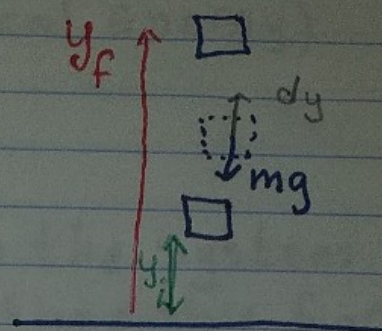 y_f
dy
mg
y_i